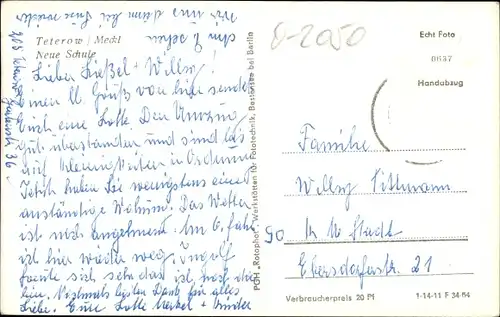 Teterow / Meckl
Neue Schule
Lieber Ließel + Willy!
Einen ll. Gruß von hier sendet
Euch eine Lotte. Den Umzug
gut überstanden und sind bis
auf Kleinigkeiten in Ordnung
Jetzt haben Sie wenigstens eine
anständige Wohnung. Das Wetter
ist noch angenehm. Am 6. fahre
ich hier wieder weg,
freute sich sehr das ich noch
hier. Nochmals besten Dank für alles
Liebe. Eure Lotte Merkel + Kinder
PGH „Rotophot“, Werkstätten für Fototechnik, Bestensee bei Berlin
0-2050
Echt Foto
0637
Handabzug
Familie
Willy Tittmann
90 K M Stadt
Ebersdorferstr. 21
Verbraucherpreis 20 Pf
1-14-11 F 34-64